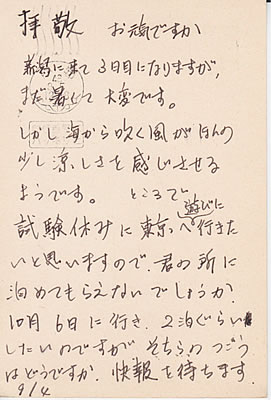 拝敬 お元気ですか
に来て3日目になりますが、
まだ暑くて大変です。
しかし海から吹く風がほんの
少し涼しさを感じさせる
ようです。 ところで
試験休みに東京へ遊びに行きた
いと思いますので、君の所に
泊めてもらえないでしょうか。
10月6日に行き、2泊ぐらい
したいのですが そちらのつごう
はどうですか。快報を待ちます。
9/4